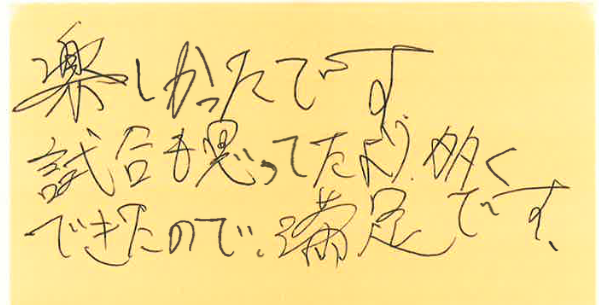 楽しかったです
試合も思ってたより、多く
できたので、満足です、